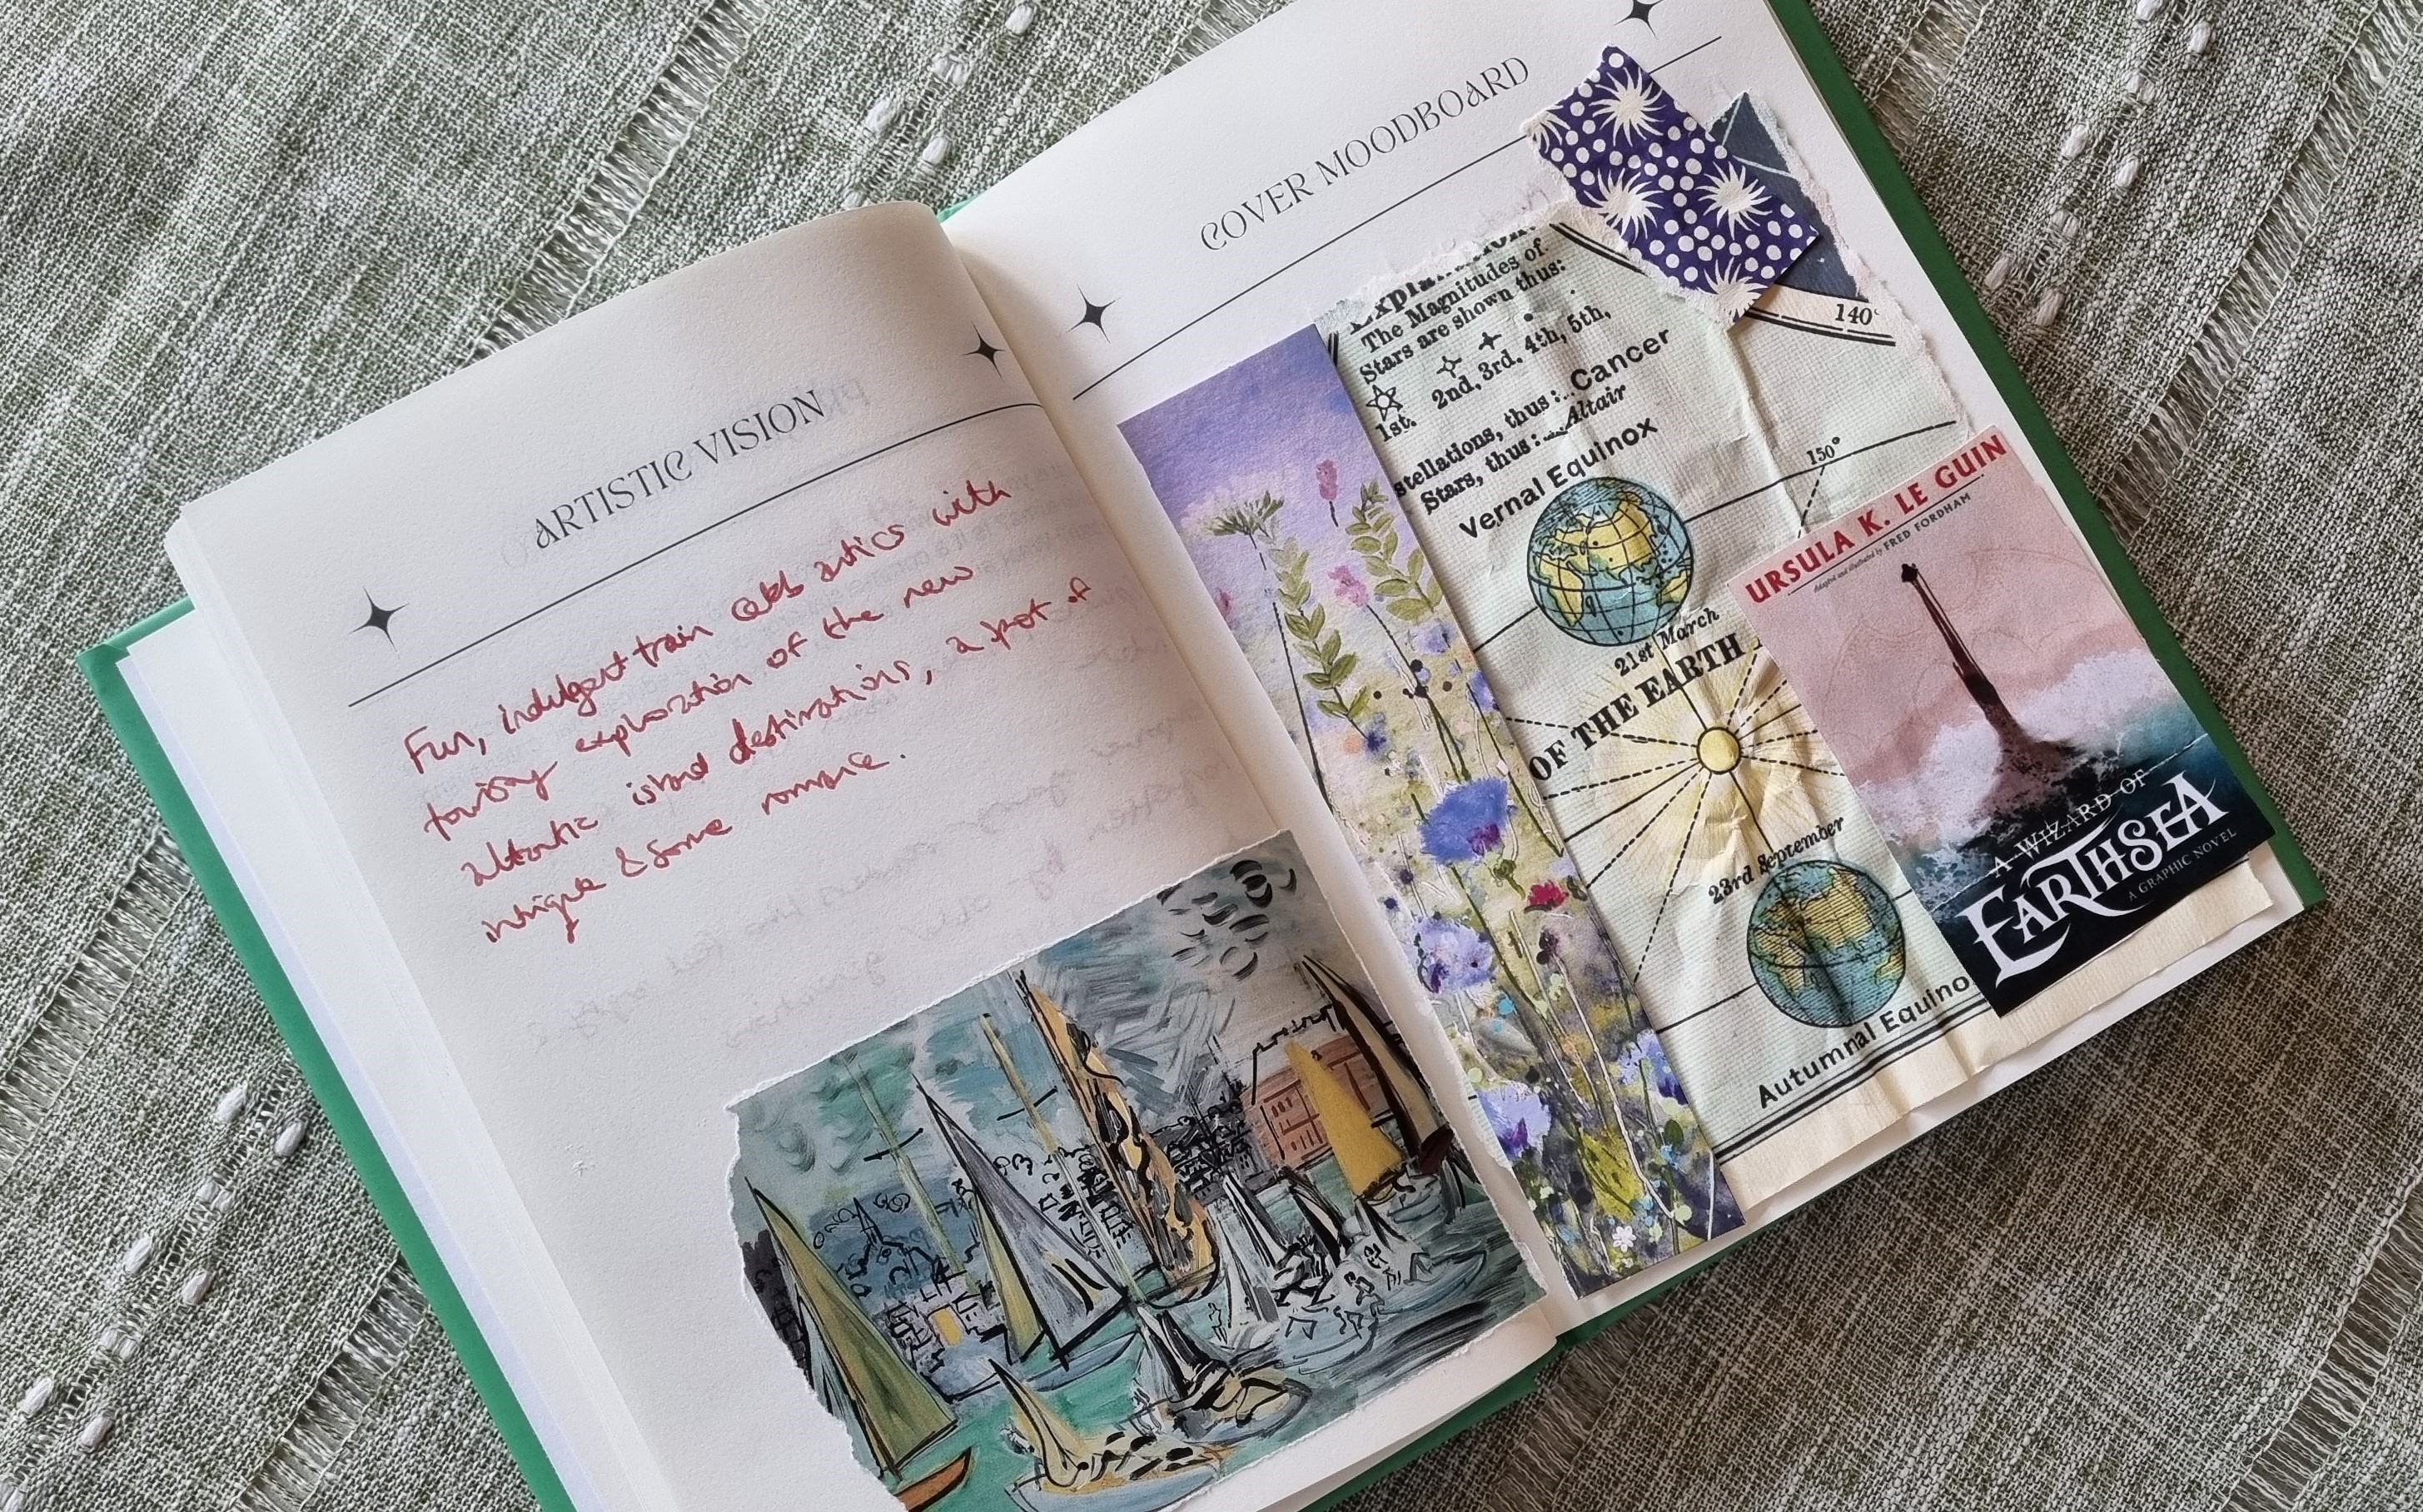 ARTISTIC VISION
Fun, indulgent train antics with
touristy exploration of the new
atlantic island destinations, a spot of
intrigue & some romance.
COVER MOODBOARD
The Magnitudes of
Stars are shown thus:
1st. 2nd, 3rd. 4th, 5th,
stellations, thus: Cancer
Stars, thus: Altair
Vernal Equinox
21st March
OF THE EARTH
23rd September
Autumnal Equino
140°
150°
URSULA K. LE GUIN
Adapted and illustrated by FRED FORDHAM
A WIZARD OF
EARTHSEA
A GRAPHIC NOVEL